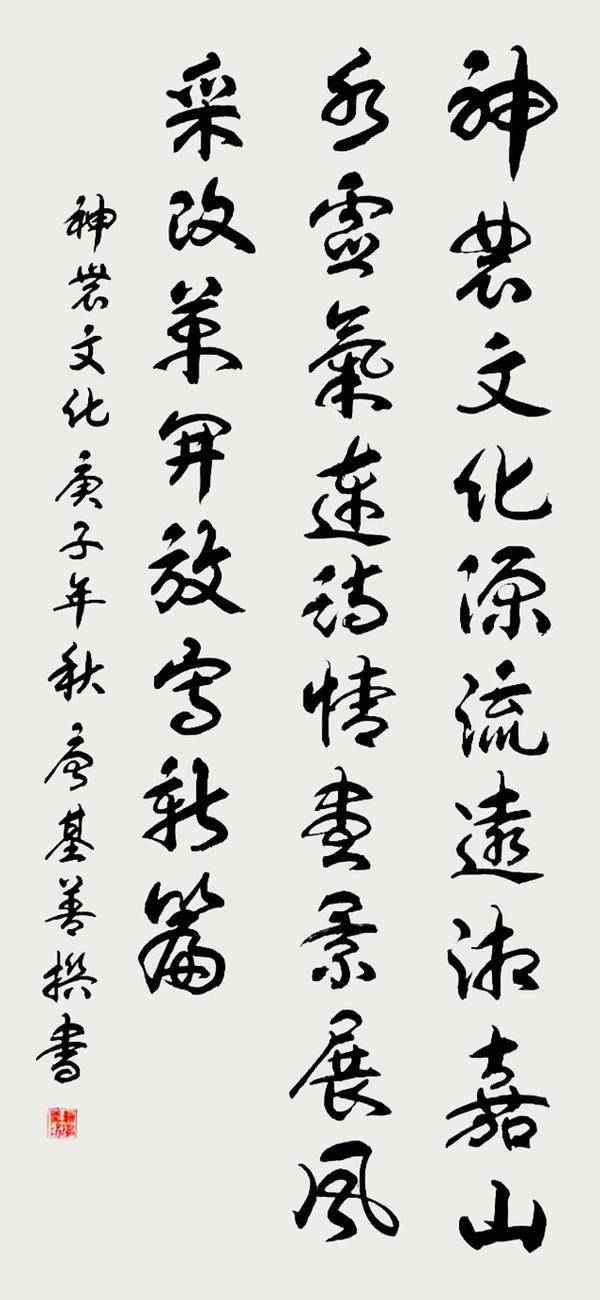 神農文化源流遠湘嘉山
水靈氣連詩情畫景展風
采改革開放寫新篇
神農文化庚子年秋唐基善撰書